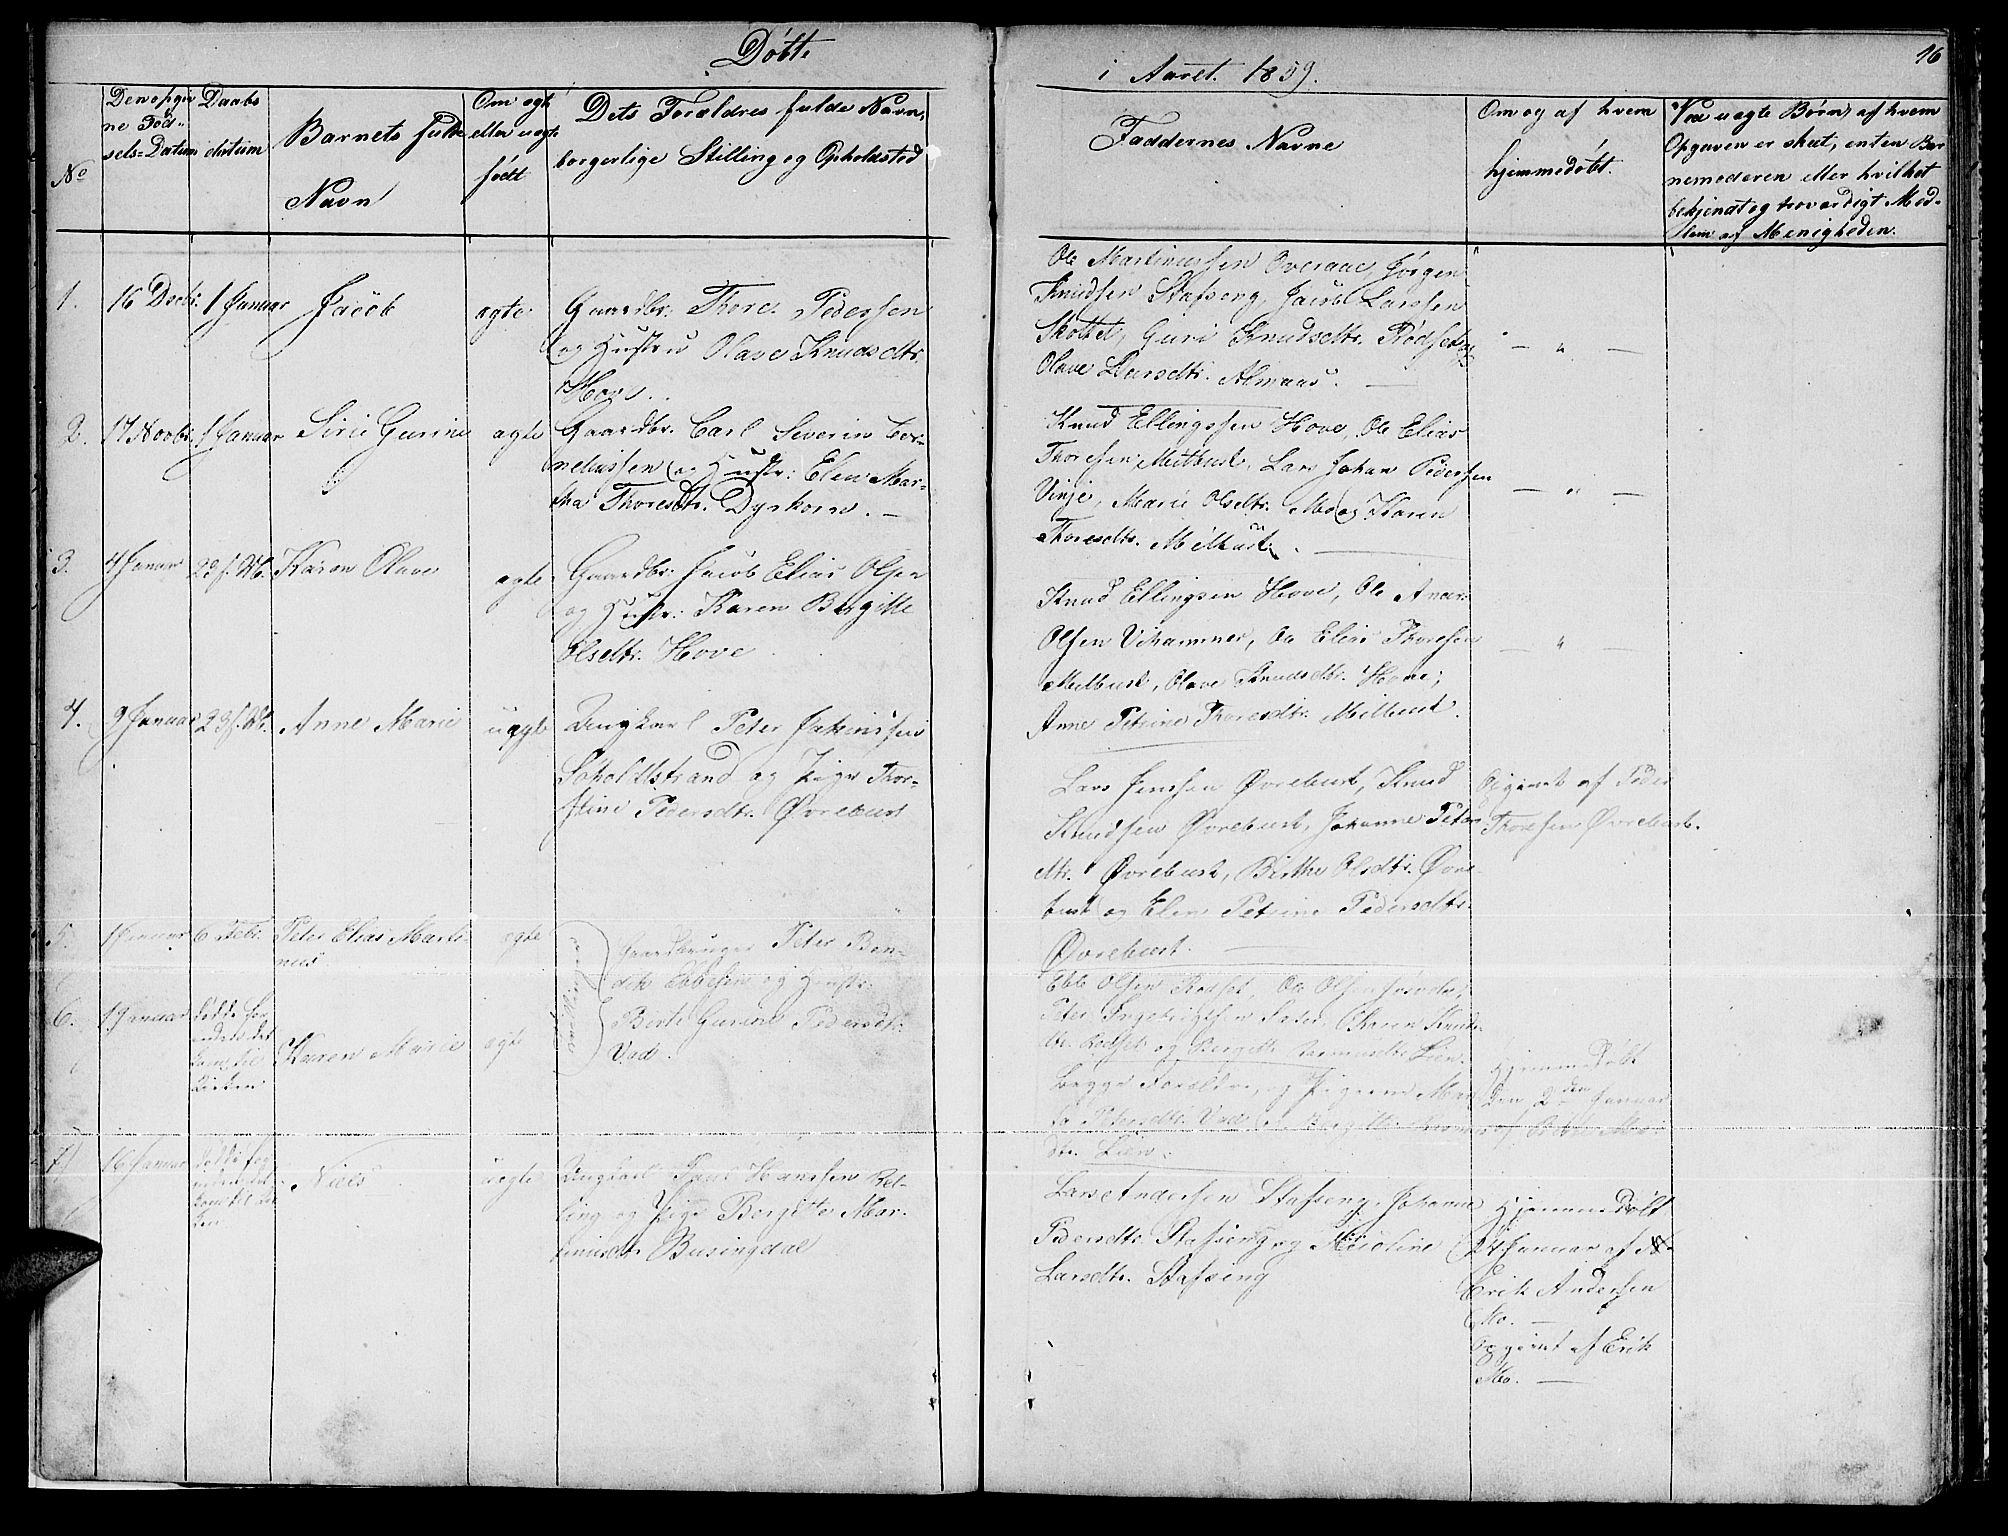 Döbte
i Aaret 1859.
16
No
Den opgiv
ne Föd=
sels-Datum
Daabs
datum
Barnets fulde
Navn
Om ægte
eller uægte
födt
Dets Forældres fulde Navn,
borgerlige Stilling og Opholdssted
Faddernes Navne
Om og af hvem
hjemmedöbt.
Ved uægte Börn, af hvem
Opgaven er skeet, enten Bar
nemoderen eller hvilket
bekjendt og troværdigt Med=
lem af Menigheden.
1.
16 Decbr.
1 Januar
Jacob
ægte
Gaardbr. Thore Pedersen
og Hustru Olave Knudsdtr.
Hove.
Ole Martinussen Overaae, Jörgen
Knudsen Stafseng, Jacob Larssen
Skottet, Guri Knudsdtr. Rödset og
Olave Larsdtr. Almaas.
— " —
2.
17 Novbr.
1 Januar
Sirie Gurine
ægte
Gaardbr. Carl Severin Cor=
neliussen og Hustr: Elen Mar=
tha Thoresdtr. Dyrkorn. —
Knud Ellingssen Hove, Ole Elias
Thoresen Melbust, Lars Johan Pedersen
Vinje, Marie Olsdtr. Mo og Karen
Thoresdtr. Melbust.
— " —
3.
4 Januar
22 s. M.
Karen Olave
ægte
Gaardbr. Jacob Elias Olsen
og Hustr: Karen Bergitte
Olsdtr. Hove.
Knud Ellingsen Hove, Ole Andr.
Olsen Vihammer, Ole Elias Thoresen
Melbust, Olave Knudsdtr. Hove,
Anne Petrine Thoresdtr. Melbust.
— " —
4.
9 Januar
23 s. M.
Anne Marie
uægte
Ungkarl Peter Jakinssen
Scholdstrand og Pige Thor=
stine Pedersdtr. Övrebust
Lars Jenssen Övrebust, Knud
Knudssen Övrebust, Johanne Peters
dtr. Övrebust, Birthe Olsdtr. Övre
bust og Elen Petrine Pedersdtr.
Övrebust.
Opgivet af Peder
Thoresen Övrebust.
5.
1 Januar
6 Febr.
Peter Elias Marti-
nus
ægte
Gaardbruger Peter Ben=
dik Ebbesen og Hustr:
Berte Gurine Pedersdtr.
Vad.
Ebbe Olsen Rödset, Ole Olsen
Peter Ingebrigtsen Sæter, Karen Knuds
dtr. Rödset og Bergitte Rasmusdtr. Lien.
6.
1 Januar
Döde för
endets det
kom til
Kirken
Karen Marie
ægte
Begge Forældre, og Pigerne Mar
Petersdtr. Vad og Bergitte Rasmus
dtr. Lien.
Hjemmedöbt
den 2den Januar
af
7.
16 Januar
Niels
uægte
Ungkarl Paul Hanssen Rel=
ling og Pige Bergitte Mar=
tinusdtr. Busingdal
Lars Andersen Stafseng, Johanne
Pedersdtr. Stafseng og Karoline
Larsdtr. Stafseng
Hjemmedöbt
24 Januar af
Erik Andersen
Mo. —
Opgivet af Erik
Mo. —